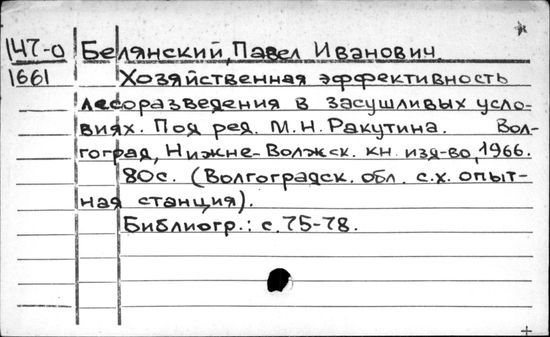 147-0 Белянский, Павел Иванович
1661 Хозяйственная эффективность
лесоразведения в засушливых усло-
виях. Под ред. М.Н. Ракутина. Вол-
гоград, Нижне-Волжск. кн. изд-во, 1966.
80с. (Волгоградск. обл. с.х. опыт-
ная станция).
Библиогр.: с. 75-78.